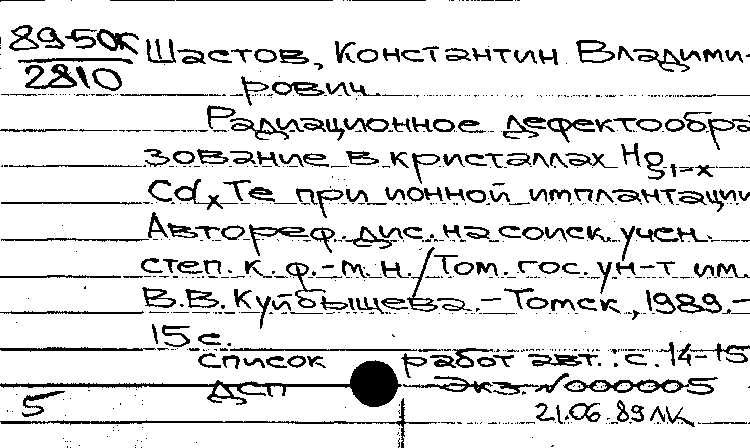 89-50к Шастов, Константин Владими-
2810 рович.
Радиационное дефектообра
зование в кристаллах Hg1-x
CdxTe при ионной имплантации
Автореф. дис. на соиск. учен.
степ. к. ф.-м. н. / Том. гос. ун-т им.
В.В. Куйбышева. - Томск, 1989. -
15 с.
список работ авт.: с. 14-15
ДСП Экз. №000005
5 21.06.89